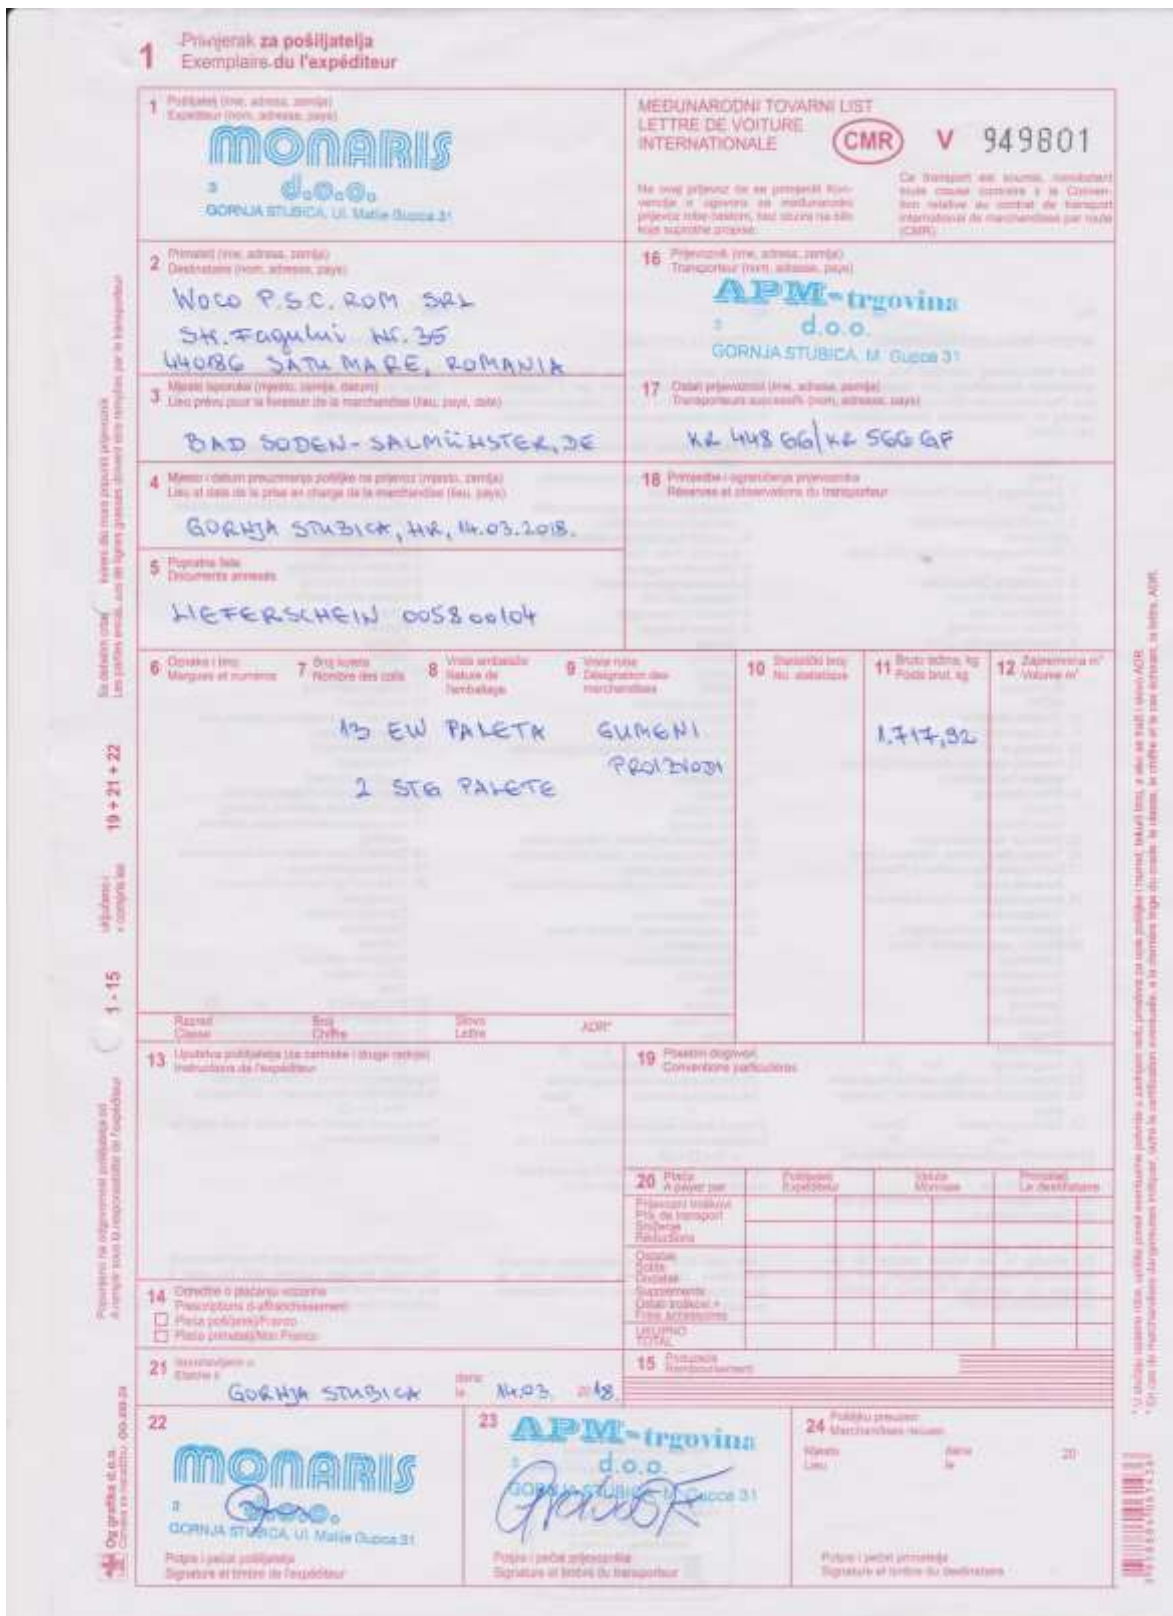 1 Primjerak za pošiljatelja
Exemplaire du l'expéditeur
1 Pošiljatelj (ime, adresa, zemlja)
Expéditeur (nom, adresse, pays)
MONARIS
3 d.o.o.
GORNJA STUBICA, Ul. Matije Gupca 31
MEĐUNARODNI TOVARNI LIST
LETTRE DE VOITURE
INTERNATIONALE
CMR V 949801
Ce transport est soumis, nonobstant
toute clause contraire à la Conven-
tion relative au contrat de transport
international de marchandises par route
(CMR).
2 Primatelj (ime, adresa, zemlja)
Destinataire (nom, adresse, pays)
WOCO P.S.C. ROM SRL
Str. Fagului Nr. 35
440186 SATU MARE, ROMANIA
16 Prijevoznik (ime, adresa, zemlja)
Transporteur (nom, adresse, pays)
APM-trgovina
d.o.o.
GORNJA STUBICA, M. Gupca 31
3 Mjesto isporuke (mjesto, zemlja, datum)
Lieu prévu pour la livraison de la marchandise (lieu, pays, date)
BAD SODEN-SALMÜNSTER, DE
17 Ostali prijevoznici (ime, adresa, zemlja)
Transporteurs successifs (nom, adresse, pays)
KR 448 GG/KR 566 GF
4 Mjesto i datum preuzimanja pošiljke na prijevoz (mjesto, zemlja)
Lieu et date de la prise en charge de la marchandise (lieu, pays)
GORNJA STUBICA, HR, 14.03.2018.
18 Primjedbe i ograničenja prijevoznika
Réserves et observations du transporteur
5 Popratne liste
Documents annexés
LIEFERSCHEIN 005800104
6 Oznake i broj
Marques et numéros
7 Broj koleta
Nombre des colis
8 Vrsta ambalaže
Nature de
l'emballage
9 Vrsta robe
Désignation des
marchandises
10 Statistički broj
No. statistique
11 Bruto težina, kg
Poids brut, kg
12 Zapremnina m³
Volume m³
13 EW PALETA GUMENI 1.717,92
PROIZVODI
2 STG PALETE
Razred
Classe
Broj
Chiffre
Slovo
Lettre
ADR*
13 Uputstva pošiljatelja (za carinske i druge radnje)
Instructions de l'expéditeur
19 Posebni dogovori
Conventions particulières
20 Plaća
A payer par
Pošiljatelj
Expéditeur
Valuta
Monnaie
Primatelj
Le destinataire
Prijevozni troškovi
Prix de transport
Sniženje
Réductions
Ostatak
Solde
Dodatak
Suppléments
Ostali troškovi +
Frais accessoires
UKUPNO
TOTAL
14 Odredbe o plaćanju vozarine
Prescriptions d'affranchissement
Plaća pošiljatelj/Franco
Plaća primatelj/Non Franco
15 Pouzeće
Remboursement
21 Ispostavljeno u
Etablie à
GORNJA STUBICA
dana
le 14.03. 2018.
22
MONARIS
3 d.o.o.
GORNJA STUBICA, Ul. Matije Gupca 31
Potpis i pečat pošiljatelja
Signature et timbre de l'expéditeur
23
APM-trgovina
d.o.o.
GORNJA STUBICA, M. Gupca 31
Potpis i pečat prijevoznika
Signature et timbre du transporteur
24 Pošiljku preuzeo
Marchandises reçues
Mjesto
Lieu
dana
le
20
Potpis i pečat primatelja
Signature et timbre du destinataire
1 - 15
uključeno i
y compris les
19 + 21 + 22
Og grafika d.o.o.